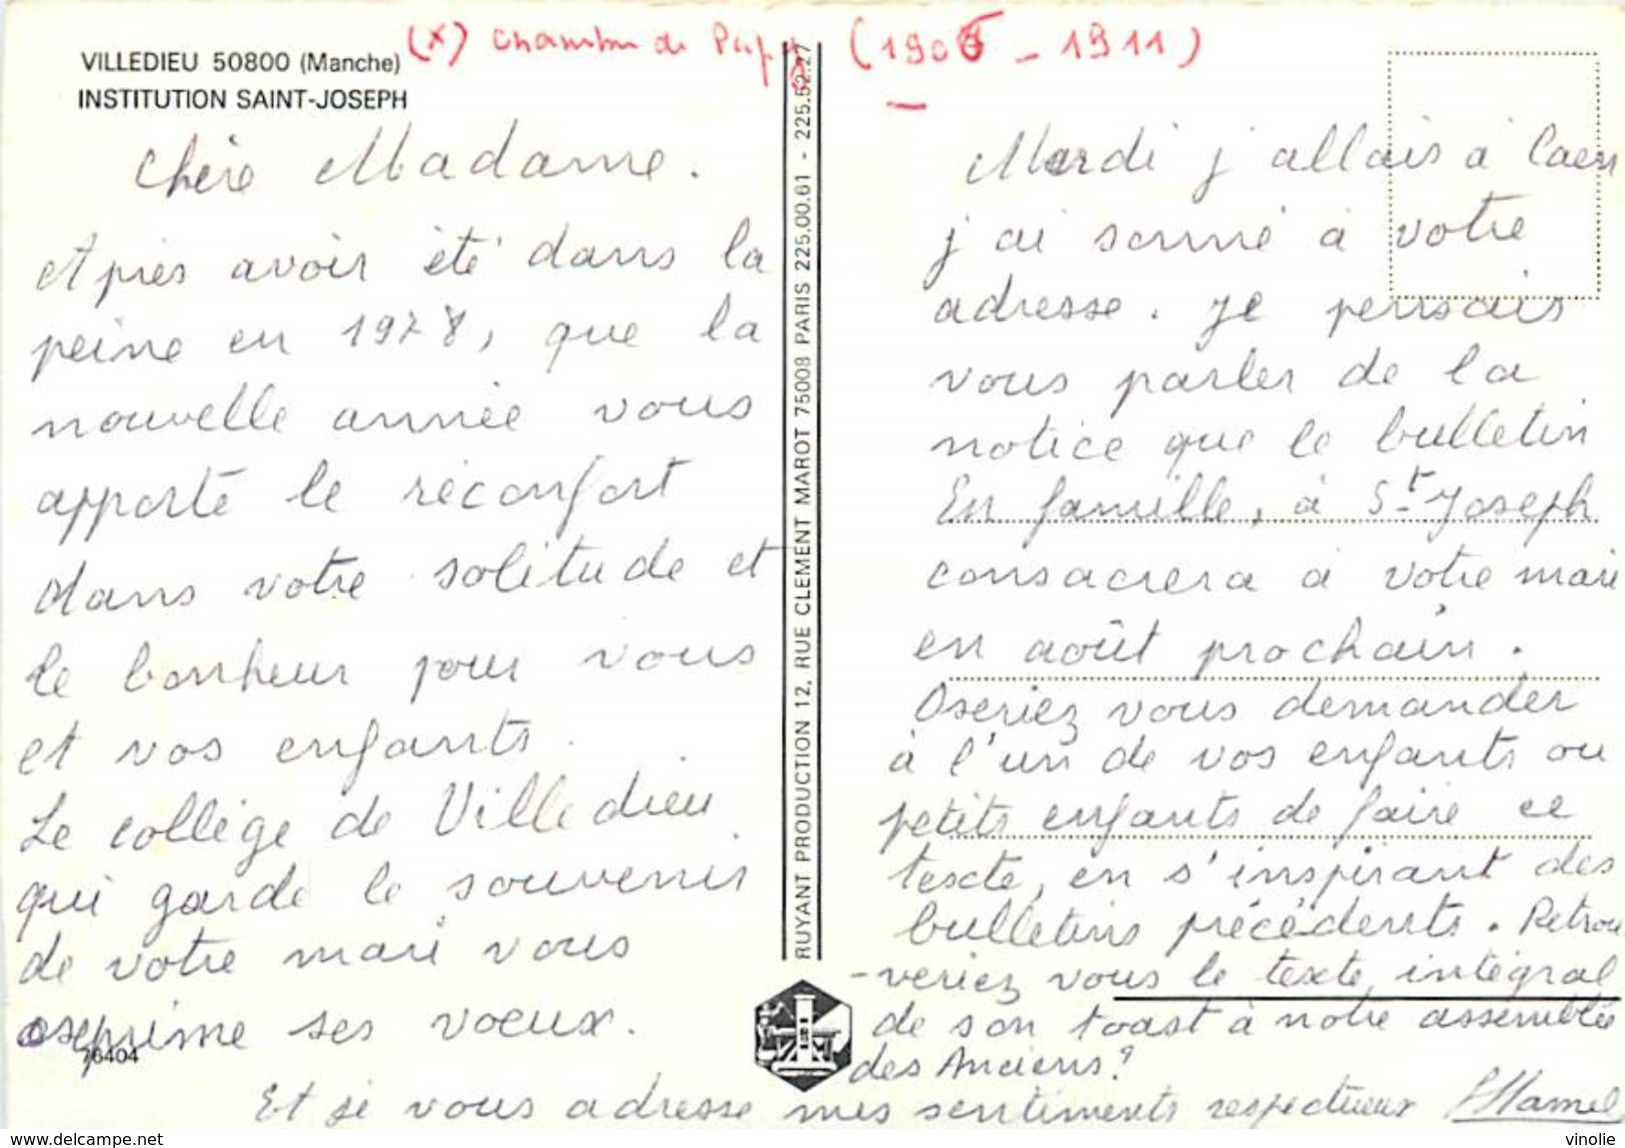 VILLEDIEU 50800 (Manche)
INSTITUTION SAINT-JOSEPH
(x) chambre de Papy (1906 - 1911)
Chère Madame.
Après avoir été dans la
peine en 1978, que la
nouvelle année vous
apporte le réconfort
dans votre solitude et
le bonheur pour vous
et vos enfants.
Le collège de Villedieu
qui garde le souvenir
de votre mari vous
exprime ses voeux.
76404
RUYANT PRODUCTION 12, RUE CLEMENT MAROT 75008 PARIS 225.00.61 - 225.52.27
Mardi j'allais à Caen
j'ai sonné à votre
adresse. Je pensais
vous parler de la
notice que le bulletin
En famille, à St Joseph
consacrera à votre mari
en août prochain.
Oseriez vous demander
à l'un de vos enfants ou
petits enfants de faire ce
texte, en s'inspirant des
bulletins précédents. Retrou
-veriez vous le texte intégral
de son toast à notre assemblée
des Anciens?
Et je vous adresse mes sentiments respectueux Hamel
vinolie
http://www.delcampe.net